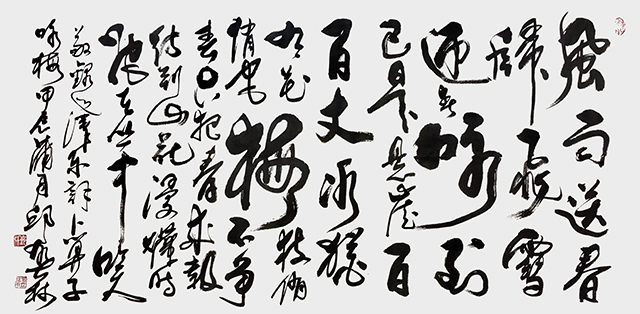 風雨送春
歸飛雪
迎春咏到
已是懸崖百
百丈冰猶
有花枝俏
俏也梅不爭
春只把春来報
待到山花漫爛時
她在丛中笑
敬錄毛澤東詞卜算子
咏梅甲辰蒲月邱林